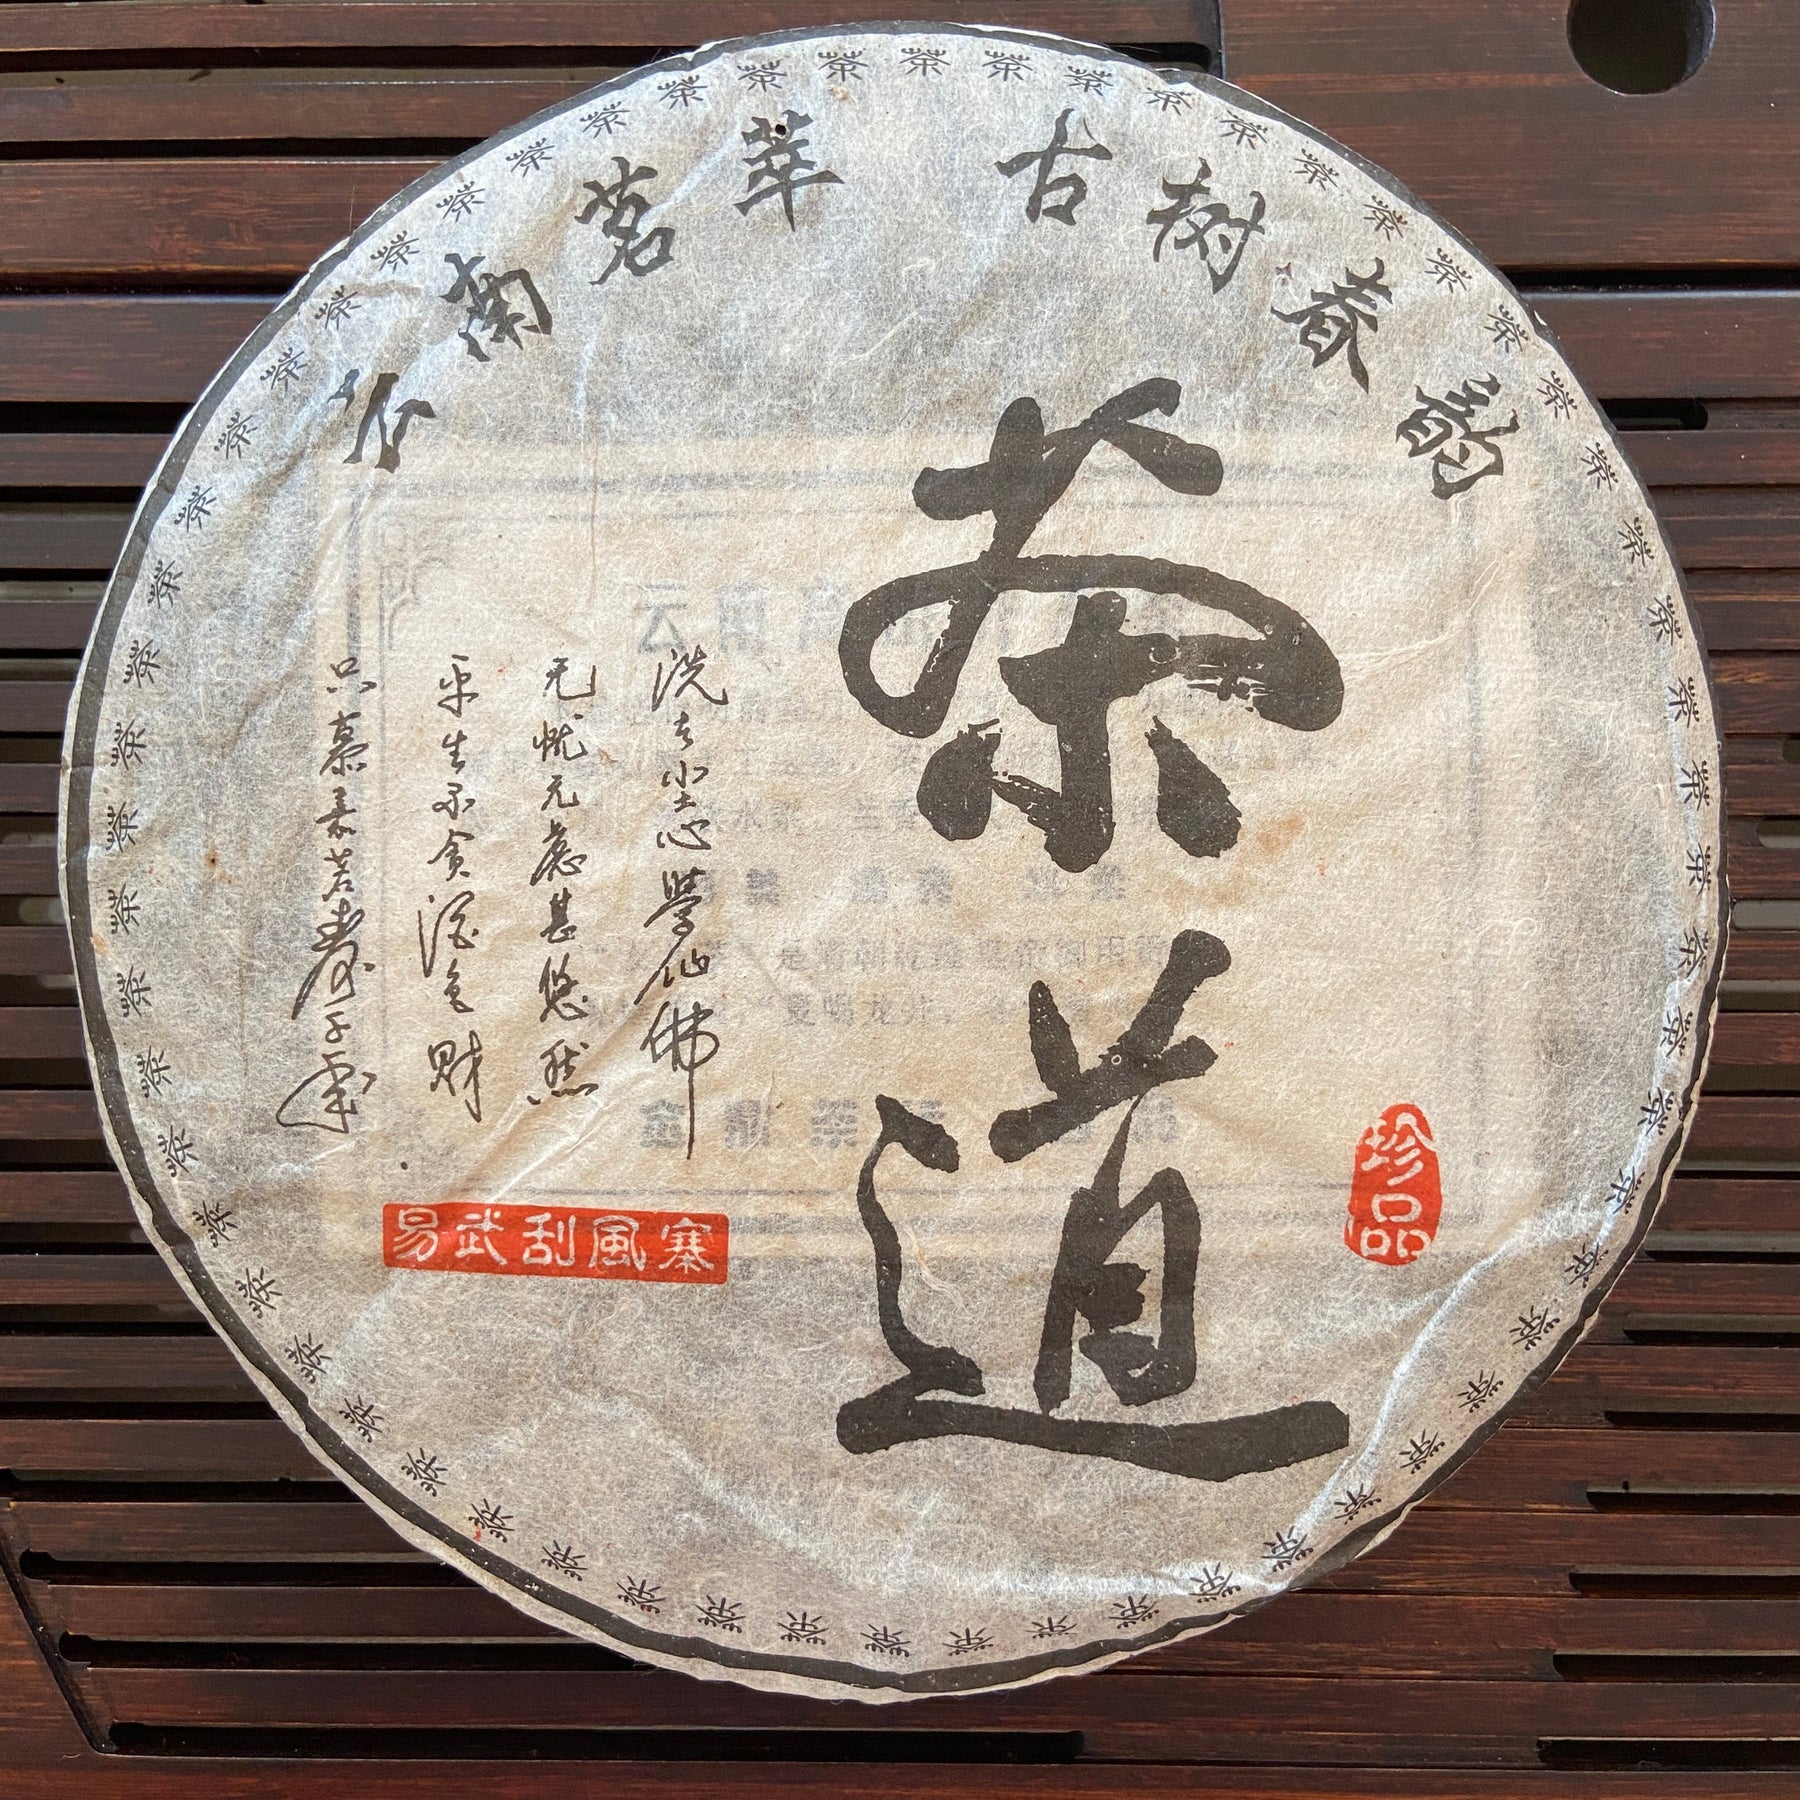 云南茗萃 古树春韵
茶道
洗去尘心学仙佛
无忧无虑甚悠然
平生不贪酒色财
只慕香茗寿千年
易武刮風寨
珍品